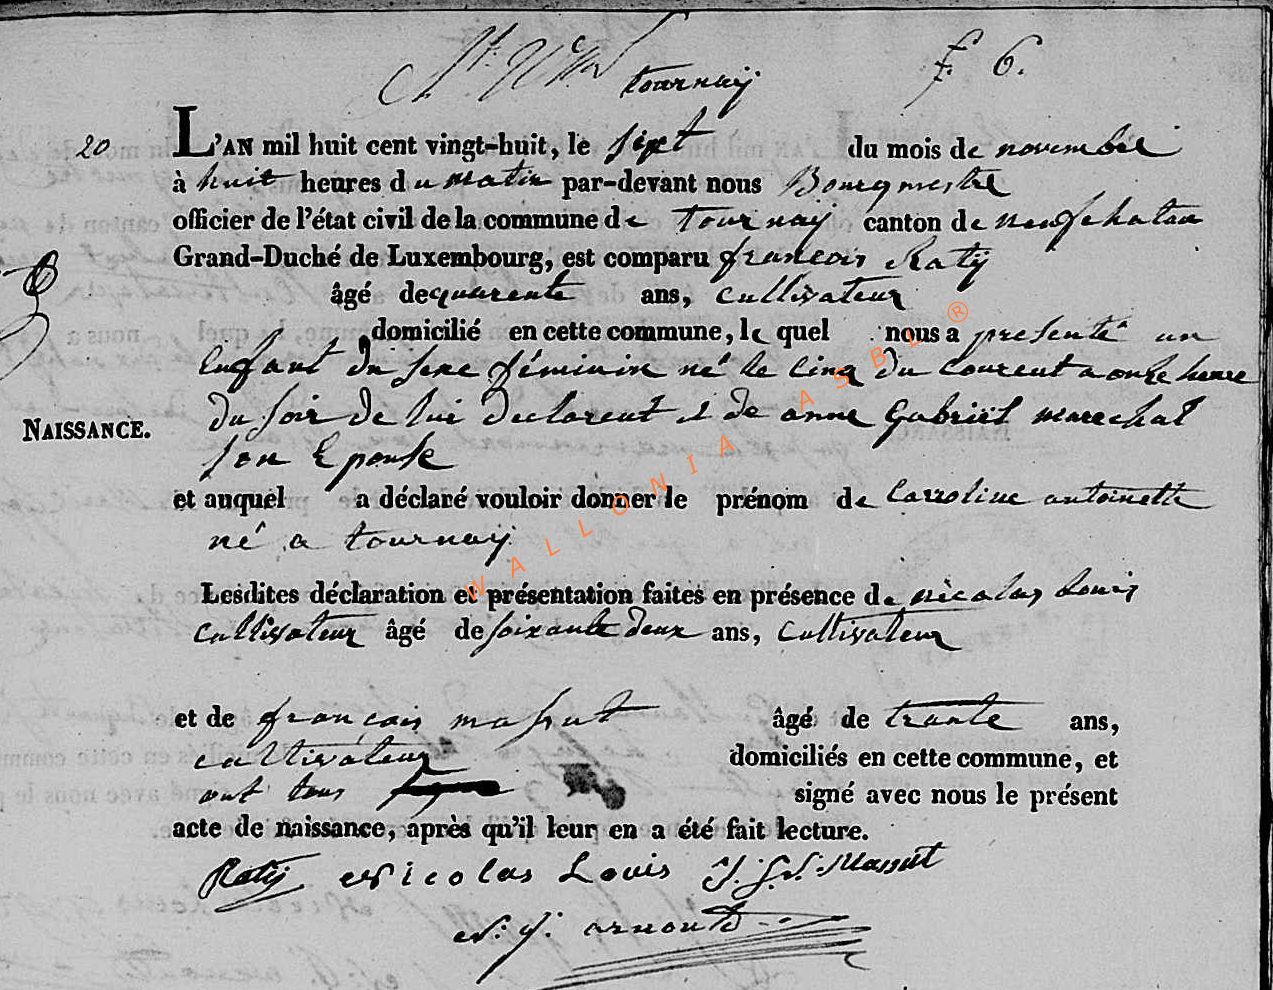 tournay
f. 6.
20
L'AN mil huit cent vingt-huit, le sixt du mois de novembre
à huit heures du matin par-devant nous Bourgmestre
officier de l'état civil de la commune de tournay canton de neufchatau
Grand-Duché de Luxembourg, est comparu francois Raty
âgé de quarente ans, cultivateur
domicilié en cette commune, le quel nous a presenté un
Enfant du sexe féminin né le cinq du courent a onze heure
du soir de lui declarent & de anne Gabriël marechal
son Epouse
NAISSANCE.
et auquel a déclaré vouloir donner le prénom de Carroline antoinette
né a tournay
Lesdites déclaration et présentation faites en présence de nicolas Louis
cultivateur âgé de soixante deux ans, cultivateur
et de françois massut âgé de trante ans,
cultivateur domiciliés en cette commune, et
ont tous signé avec nous le présent
acte de naissance, après qu'il leur en a été fait lecture.
Raty Nicolas Louis J. J. J. Massut
N. J. arnould
WALLONIA ASBL ®